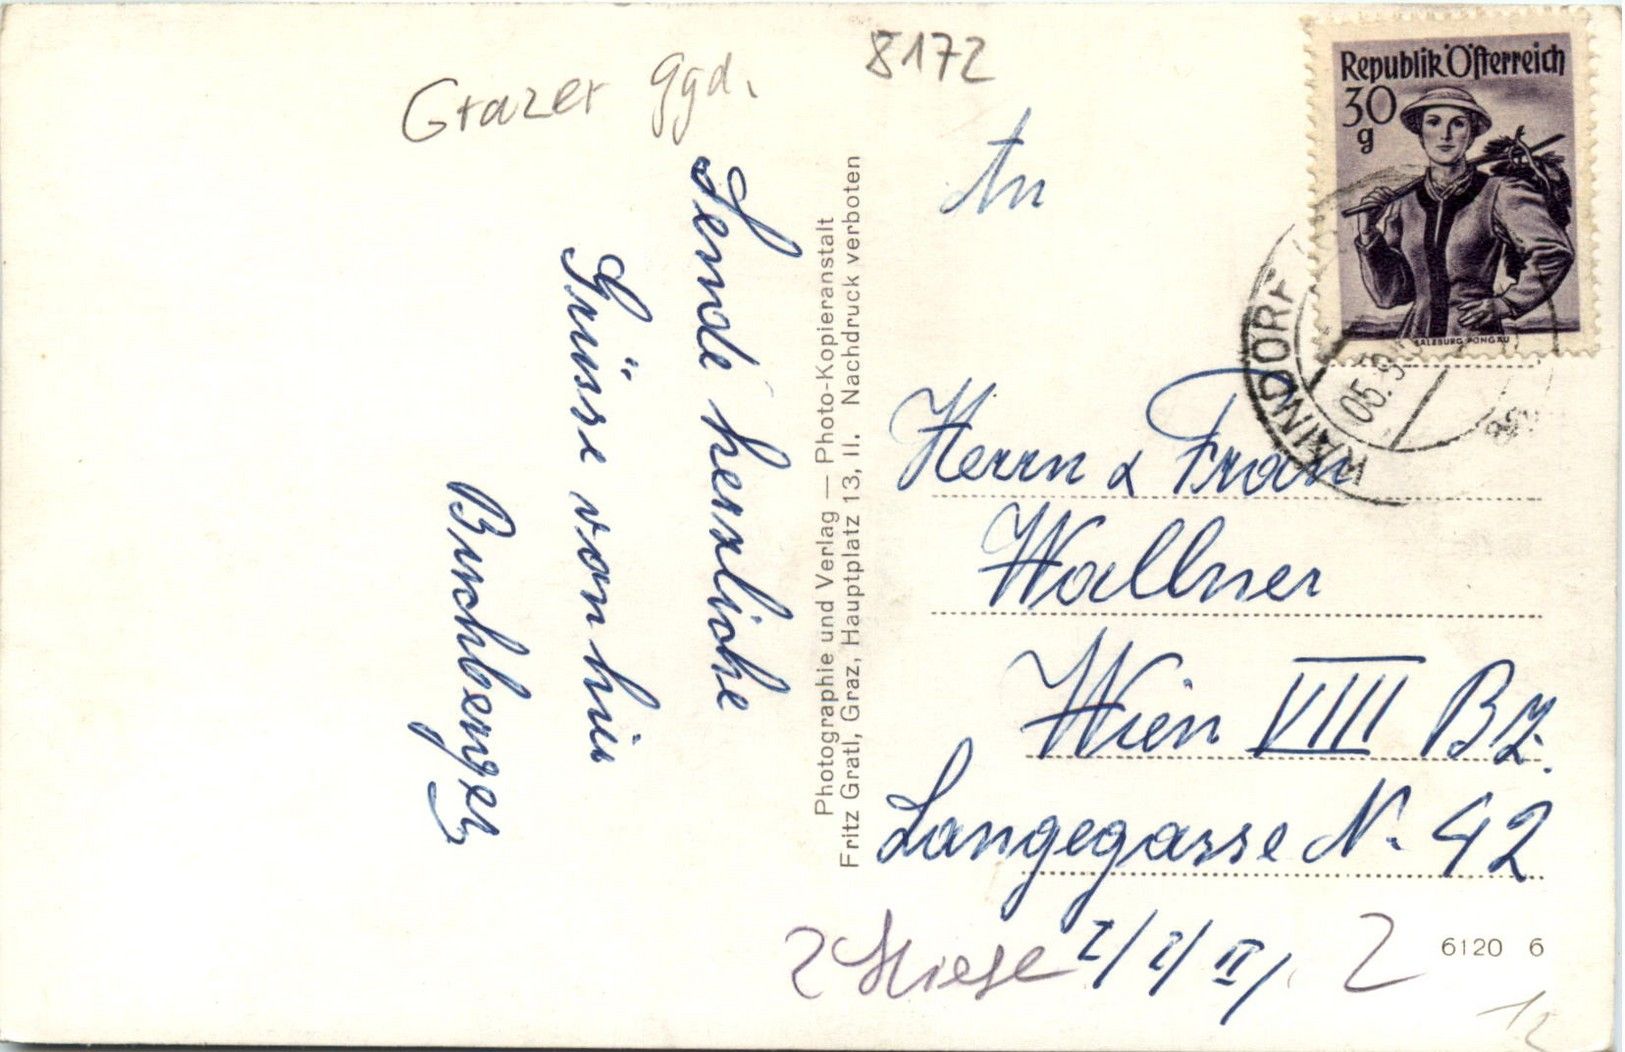 Grazer Ggd.
8172
Sende herzliche
Grüsse von hier
Buchberger
Photographie und Verlag — Photo-Kopieranstalt
Fritz Gratl, Graz, Hauptplatz 13, II. Nachdruck verboten
Republik Österreich
30
g
SALZBURG PONGAU
KAINDORF
05.9
An
Herrn & Frau
Wallner
Wien VIII Bz.
Langegasse N. 42
2 Stiege
2
6120 6